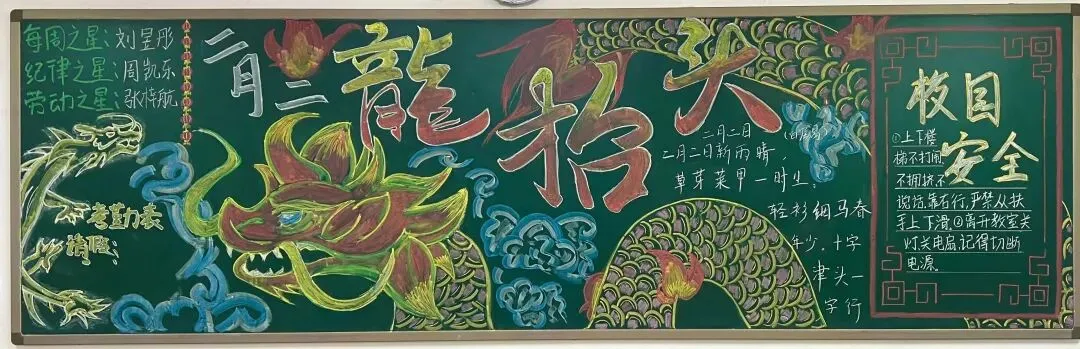 每周之星:刘昱彤
纪律之星:周凯乐
劳动之星:张梓航
考勤表
请假:
二月二
龍抬头
二月二日(白居易)
二月二日新雨晴,
草芽菜甲一时生。
轻衫细马春
年少,十字
津头一
字行
校园
安全
①上下楼
梯不打闹,
不拥挤,不
说话,靠右行,严禁从扶
手上下滑。②离开教室关
灯关电扇记得切断
电源。